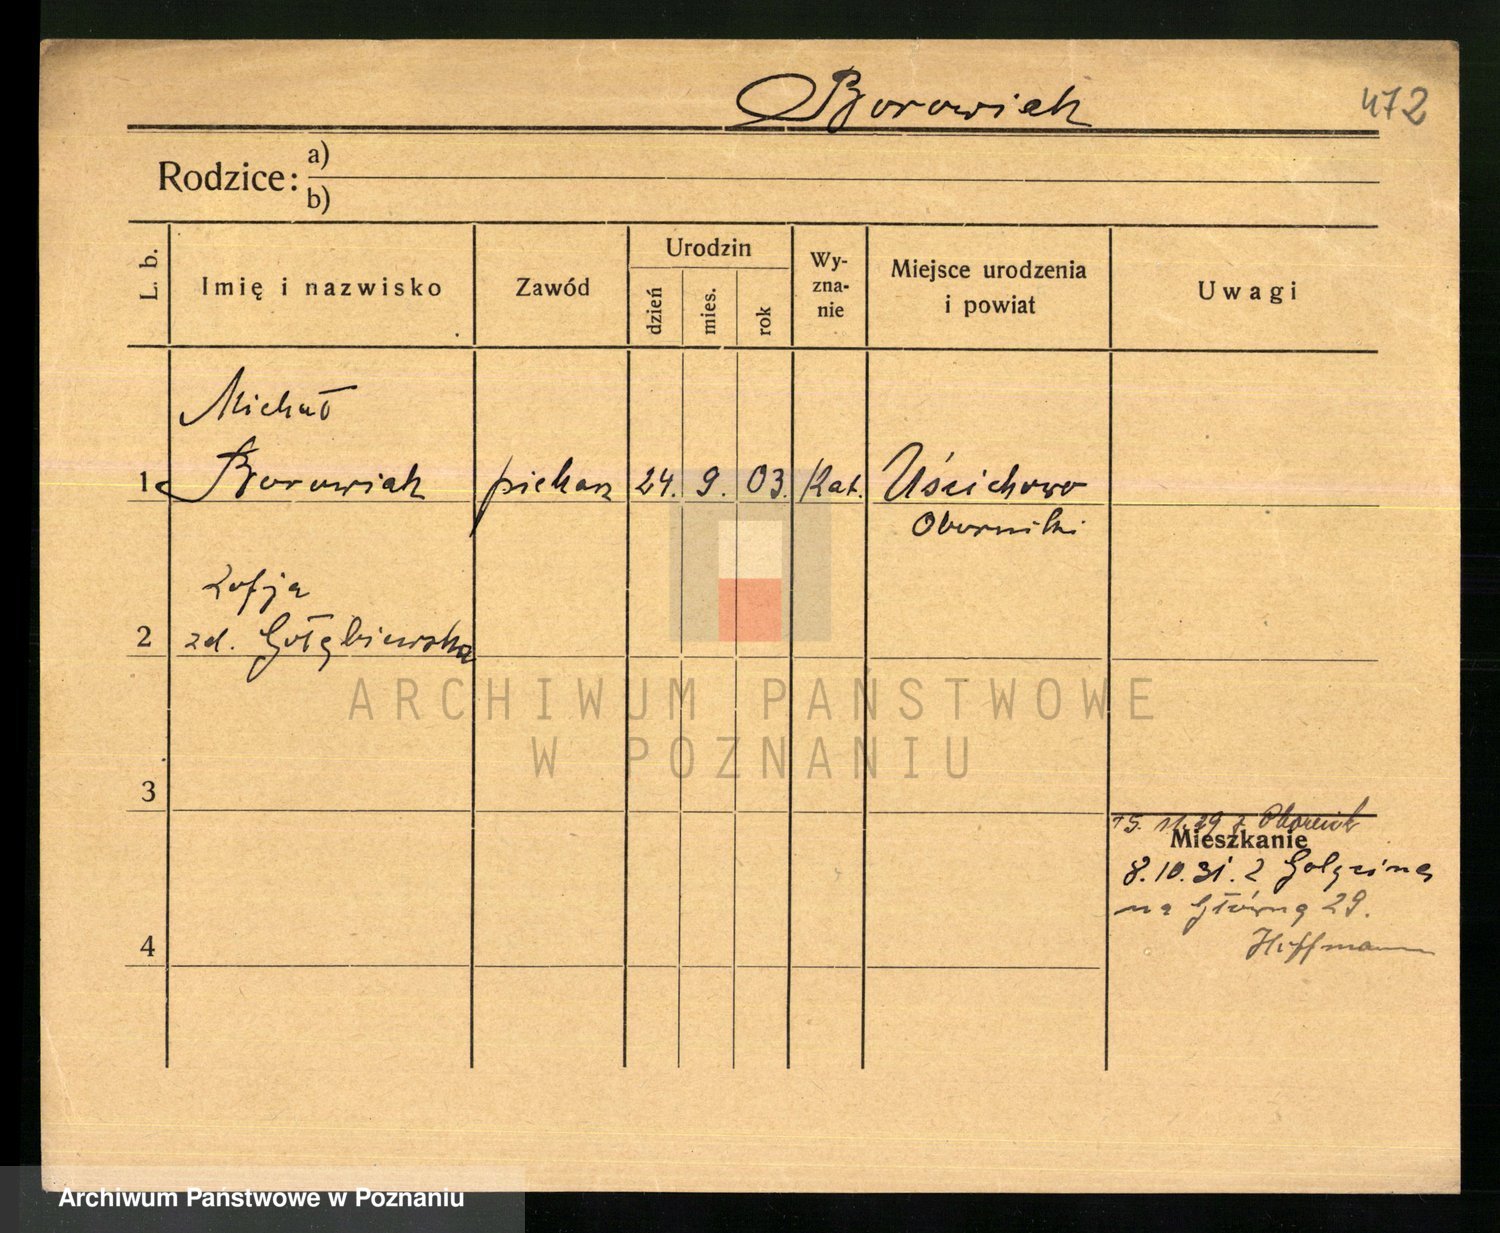 Borowiak
472
Rodzice: a)
b)
L. b.
Imię i nazwisko
Zawód
Urodzin
dzień
mies.
rok
Wy-
zna-
nie
Miejsce urodzenia
i powiat
Uwagi
Michał
1 Borowiak piekarz 24. 9. 03. Kat. Uścichowo
Oborniki
Zofja
2 zd. Gołębiewska
ARCHIWUM PAŃSTWOWE
W POZNANIU
3
15. 11. 29 z
Mieszkanie
8.10.31. z Golęcina
na Główną 29.
4
Hoffmann
Archiwum Państwowe w Poznaniu